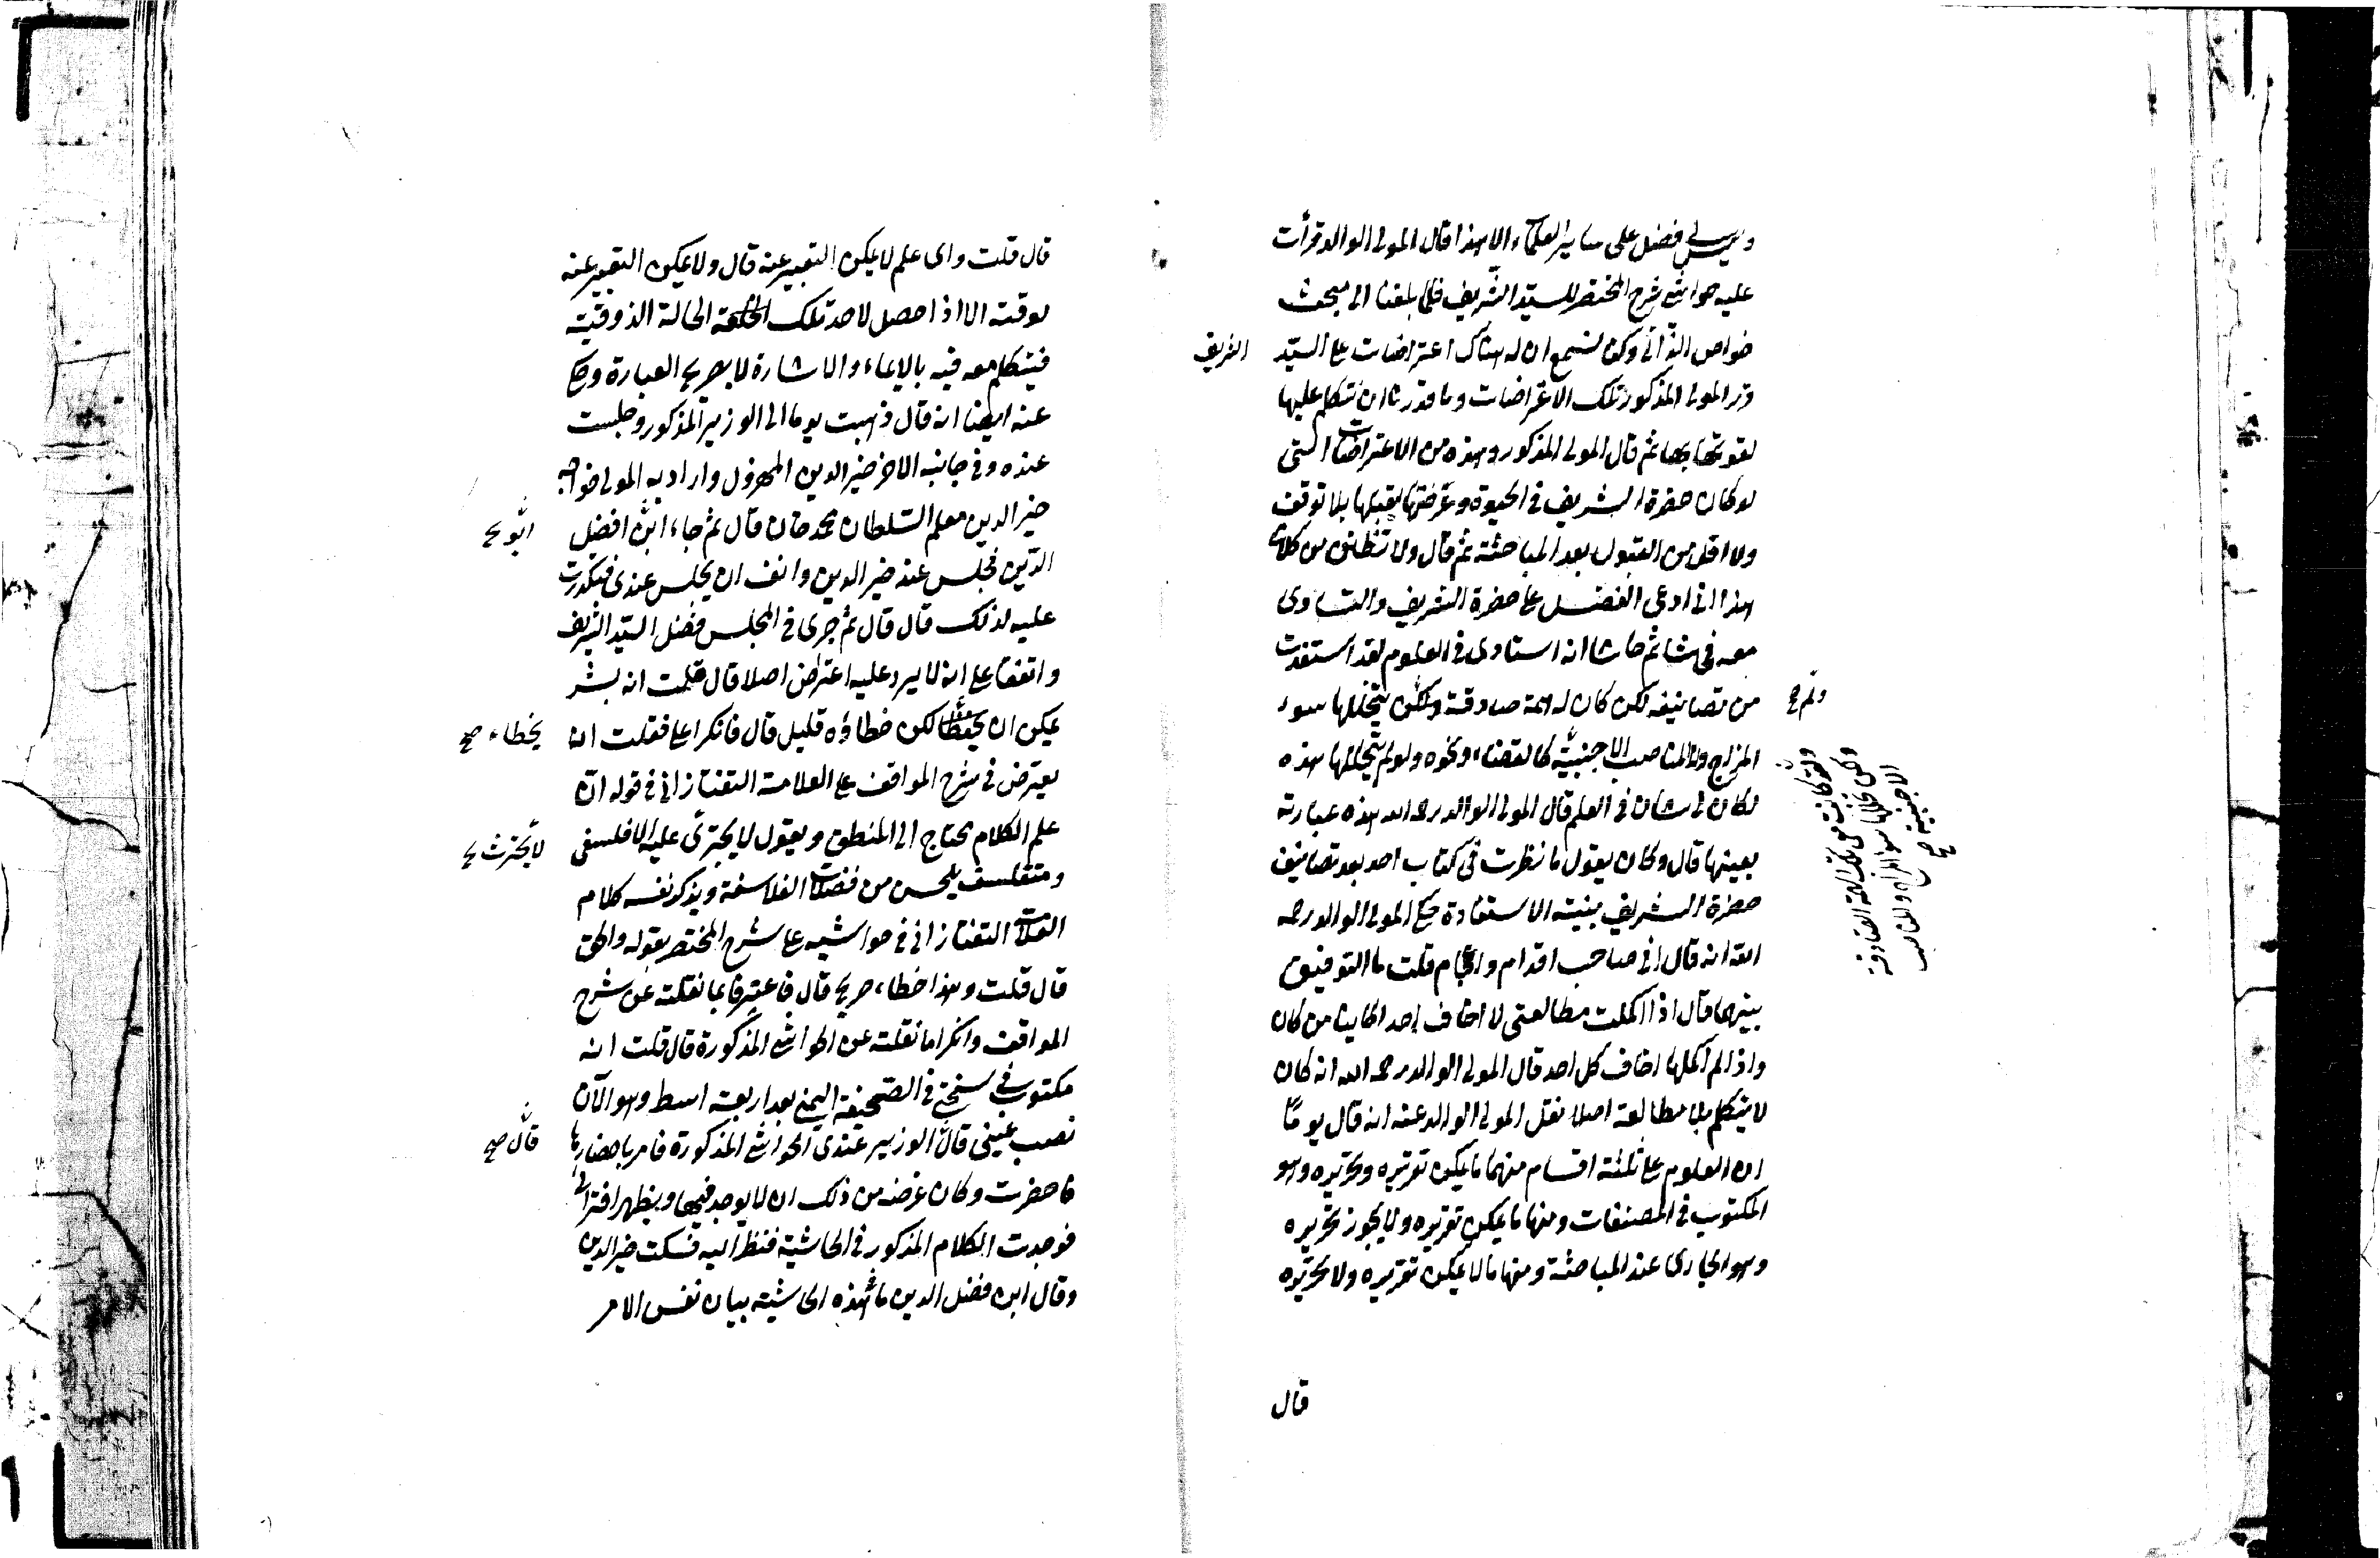 وليس لي فضل على ساير العلماء الا بهذا قال المولى الوالد قرأت
عليه حواشي شرح المختصر للسيد الشريف فلما بلغنا الى مبحث
خواص الذاتي وكنا نسمع ان له هناك اعتراضات على السيد
الشريف
قرر المولى المذكور تلك الاعتراضات وما قدرنا ان نتكلم عليها
لقوتها ثم قال المولى المذكور وهذه من الاعتراضات التي
لو كان حضرة الشريف في الحيوة وعرضتها لقبلها بلا توقف
ولا اقل من القبول بعد المباحثة ثم قال ولا تظنن من كلامي
هذا اني ادعي الفضل على حضرة الشريف والتساوي
معه في شائ ثم حاشا انه استادي في العلوم لقد استفدت
من تصانيفه لكن كان له همة صادقة ولكن يتخللها سوء
ولم صح
المزاج والمناصب الاجنبية كالقضاء ونحوه ولو لم يتخللها هذه
ولو كانت مع تلك الهمة الصادقة
ولكن تخللها سوء المزاج والمناصب
الاجنبية صح
لكان لي شان في العلم قال المولى الوالد رحمه الله هذه عبارته
بعينها قال وكان يقول ما نظرت في كتاب احد بعد تصانيف
حضرة الشريف بنية الاستفادة حكى المولى الوالد رحمه
الله انه قال اني صاحب اقدام واحجام قلت ما التوفيق
بينهما قال اذا اكملت مطالعتي لا اخاف احدا كاينا من كان
واذا لم اكملها اخاف كل احد قال المولى الوالد رحمه الله انه كان
لا يتكلم بلا مطالعة اصلا نقل المولى الوالد عنه انه قال يوما
ان العلوم على ثلثة اقسام منها ما يمكن تقريره وتحريره وهو
المكتوب في المصنفات ومنها ما يمكن تقريره ولا يجوز تحريره
وهو الجاري عند المباحثة ومنها ما لا يمكن تقريره ولا تحريره
قال
قال قلت واي علم لا يمكن التعبير عنه قال ولا يمكن التعبير عنه
لوقته الا اذا حصل لاحد تلك الحالة الذوقية
فيتكلم معه فيه بالايماء والاشارة لا بصريح العبارة وحكى
عنه ايضا انه قال ذهبت يوما الى الوزير المذكور وجلست
عنده وفي جانبه الاخر خير الدين المهزول واراد به المولى خواجه
خير الدين معلم السلطان محمد خان قال ثم جاء ابن افضل
الدين فجلس عند خير الدين وانف ان يجلس عندي فتكدرت
عليه لذلك قال قال ثم جرى في المجلس فضل السيد الشريف
واتفقا على انه لا يرد عليه اعتراض اصلا قال قلت انه بشر
يمكن ان لكن خطاؤه قليل قال فانكرا على فقلت انه
يخطاء صح
يعترض في شرح المواقف على العلامة التفتازاني في قوله ان
علم الكلام يحتاج الى المنطق ويقول لا يجترئ عليه الا فلسفي
ومتفلسف يلحس من فضلات الفلاسفة ويذكر نفسه كلام
العلامة التفتازاني في حواشيه على شرح المختصر بقوله والحق
قال قلت وهذا خطاء صريح قال فاعترفا بما نقلته عن شرح
المواقف وانكرا ما نقلت عن الحواشي المذكورة قال قلت انه
مكتوب في نسختي في الصحيفة اليمنى بعد اربعة اسطر وهو الآن
نصب عيني قال الوزير عندي الحواشي المذكورة فامر باحضارها
قال صح
فاحضرت وكان غرضه من ذلك ان لا يوجد فيها ويظهر افترائي
فوجدت الكلام المذكور في الحاشية فنظرا اليه فسكت خير الدين
وقال ابن فضل الدين هذه الحاشية بيان نفس الامر